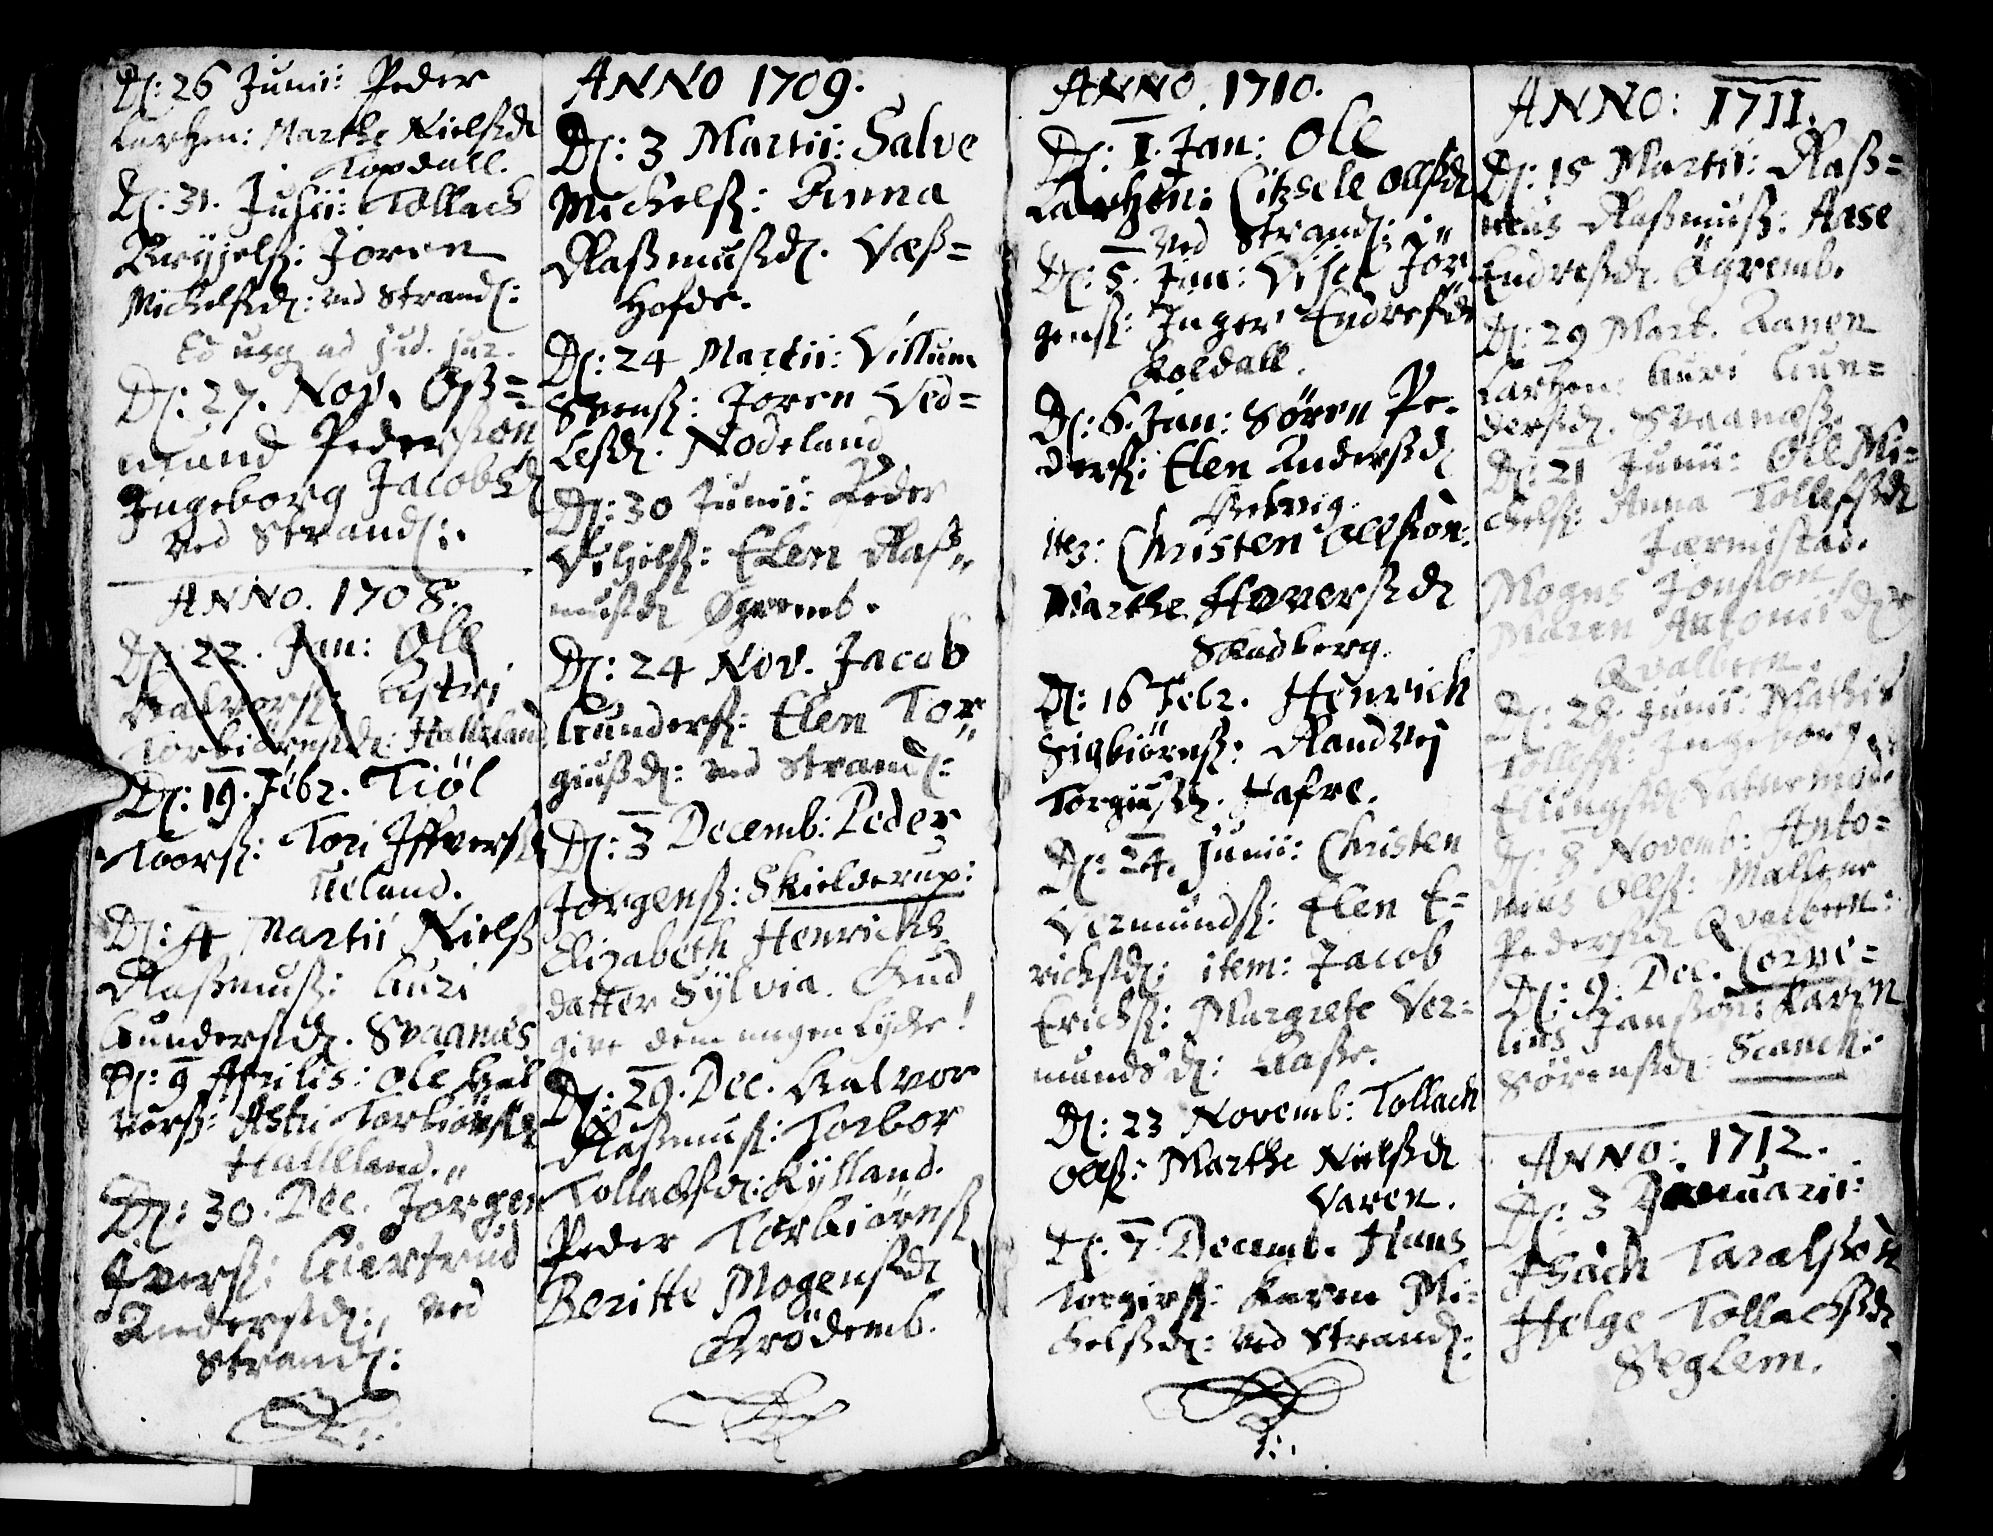 D: 26 Junii: Peder
Larsen: Marthe Nielsd
Topdall.
D: 31. Julii: Tollach
Bryjelß: Joren
Michelsd: ved Strand:
D: 27. Nov. Oß=
mund Pederßon
Ingeborg Jacobsd
ved Strand:
ANNO. 1708.
D: 22. Jan: Ole
Halvorß: Astri
Torbiörnsd: Halleland
D: 19. Febr. Tiöl
Toorß: Tori Iffversd
Ueland.
D: 4 Martii Nielß
Raßmusß: Guri
Gundersd. Svaanæs
D: 9 Aprilis: Ole Hal
vorß: Astri Torbiörsd
Halleland.
D: 30. Dec. Jörgen
Iverß: Giertrud
Andersd: ved
Strand:
ANNO 1709.
D: 3 Martii: Salve
Michelß: Anna
Raßmusd. Væß=
Hofde.
D: 24 Martii: Villum
Svenß: Joren Ved=
lesd. Nodeland
D: 30 Junii: Peder
Ellen Raß=
musd Ögremb.
D: 24 Nov. Jacob
Gunderß: Elen Tor=
giusd: ved Strand:
D: 3 Decemb: Peder
Jörgenß: Skielderup:
Elizabeth Henrichs
datter Sylvia. Gud
give dem megen Lycke!
D: 29. Dec. Halvor
Raßmusß: Torbor
Tollachsd: Kylland.
Peder Torbiörnß
Beritte Mogensd
Grödemb.
ANNO. 1710.
D: 1. Jan: Ole
Larsen: Citzele Ollsd
ved Strand:
D: 5. Jan: Jör=
genß: Inger Endresd
Roldall.
D: 6. Jan: Sören Pe=
derß: Elen Andersd
Rekvig.
Item: Christen Ollßön:
Marthe Haversd
Sandberg.
D: 16 Febr. Henrich
Sigbiörnß: Randvej
Torgiusd. Hafre.
D: 24. Junii: Christen
Vermundß: Elen E=
richsd: item: Jacob
Erichß: Margrete Ver=
mundsd: Aase.
D: 23 Novemb: Tollach
Olß: Marthe Nielßd
Varen.
D: 7. Decemb. Hans
Torgirß: Karen Mi=
chelsd: ved Strand:
ANNO: 1711.
D: 15 Martii: Raß=
mus Raßmusß: Aase
Endresd. Ögremb.
D: 29 Mart. Aanen
Larsen: Guri Gun=
dersd. Svaanæß.
D: 21 Junii: Ole Mi=
chelß: Anna Tollefsd
Jærnestad.
Mogns Jonßon
Maren Antonii
Qvalbeen.
D: 28. Junii: Mathis
Tolleffß: Ingeborg
Ellingsd Vatnemod.
D: 8 Novemb: Anto=
nius Olß: Mallene
Pedersd Qvalbeen:
D: 9. Dec. Corne=
lius Janßön: Karen
Sörensd: Scanck:
ANNO: 1712.
D: 3 Januarii:
Isach Taralßön
Helge Tollachsd
Seglem.